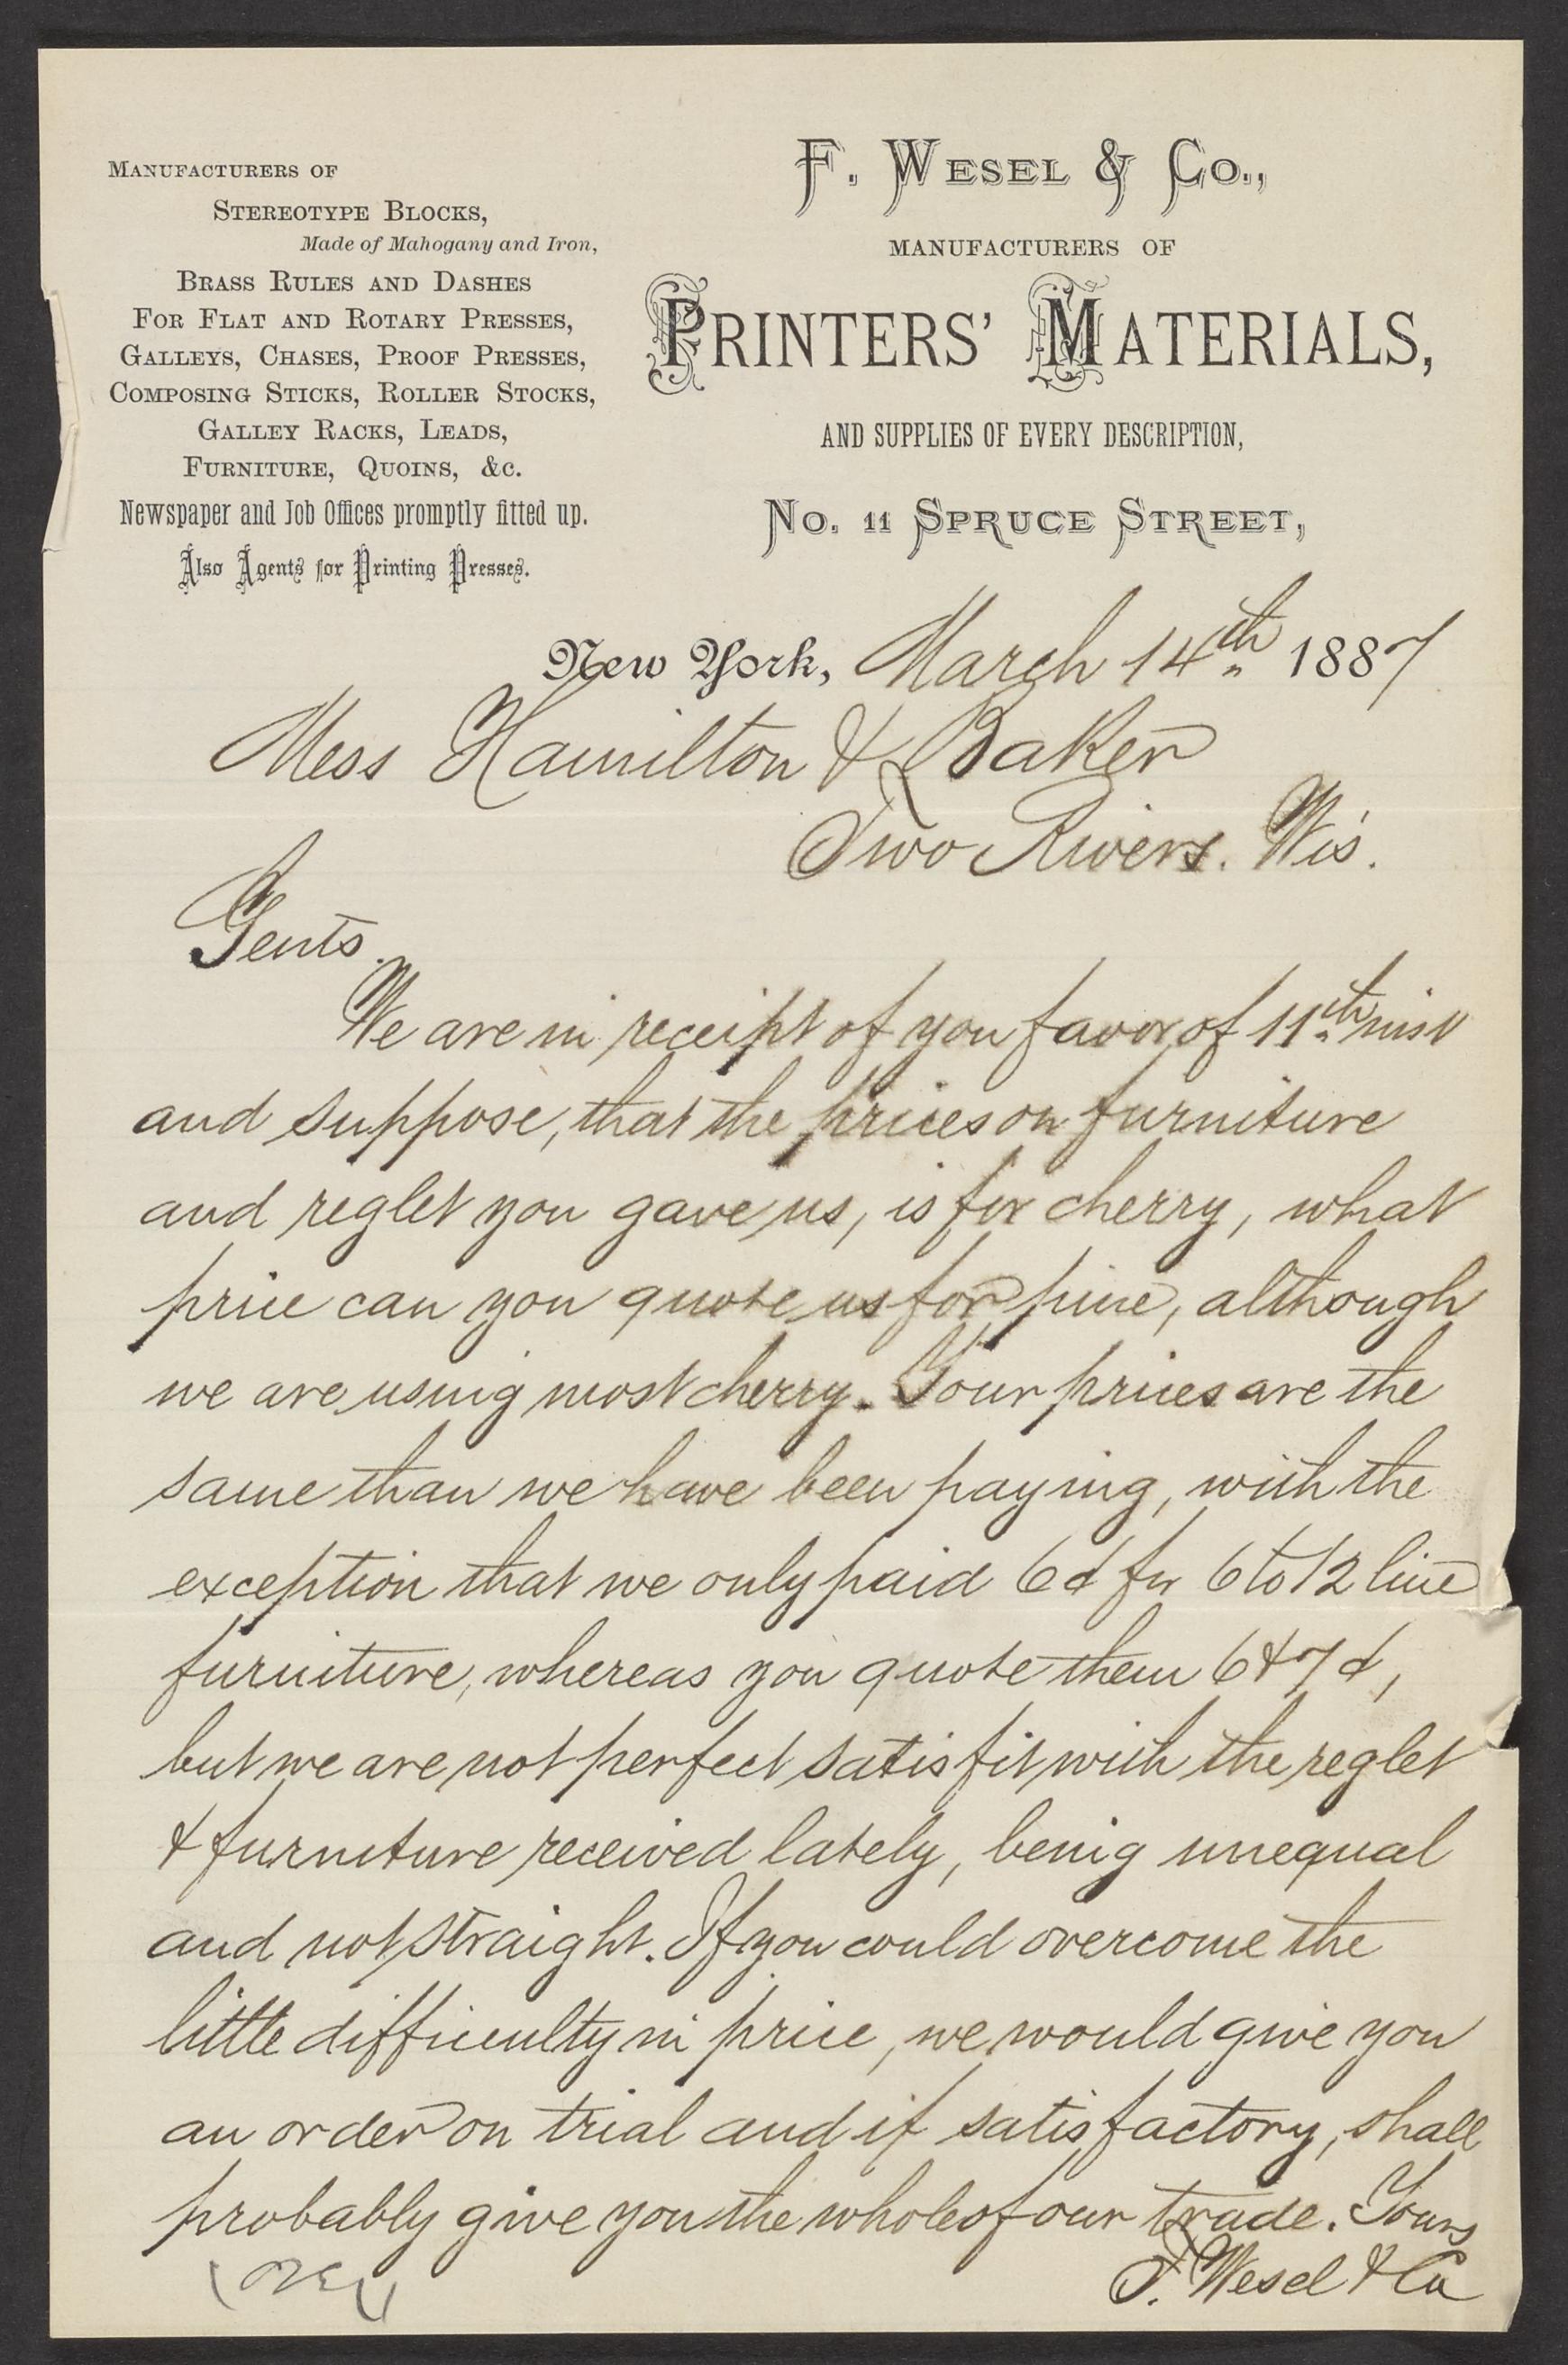 MANUFACTURERS OF
STEREOTYPE BLOCKS,
Made of Mahogany and Iron,
BRASS RULES AND DASHES
FOR FLAT AND ROTARY PRESSES,
GALLEYS, CHASES, PROOF PRESSES,
COMPOSING STICKS, ROLLER STOCKS,
GALLEY RACKS, LEADS,
FURNITURE, QUOINS, &C.
Newspaper and Job Offices promptly fitted up.
Also Agents for Printing Presses.
F. WESEL & CO.,
MANUFACTURERS OF
PRINTERS' MATERIALS,
AND SUPPLIES OF EVERY DESCRIPTION,
NO. 11 SPRUCE STREET,
New York, March 14th 1887
Mess Hamilton & Baker
Two Rivers. Wis.
Gents.
We are in receipt of you favor of 11th inst
and suppose, that the prices on furniture
and reglet you gave us, is for cherry, what
price can you quote us for pine, although
we are using most cherry. Your prices are the
same than we have been paying, with the
exception that we only paid 6¢ for 6 to 12 line
furniture, whereas you quote them 6 & 7¢,
but we are not perfect satisfit with the reglet
& furniture received lately, being unequal
and not straight. If you could overcome the
little difficulty in price, we would give you
an order on trial and if satisfactory, shall
probably give you the whole of our trade. Yours
F. Wesel & Co